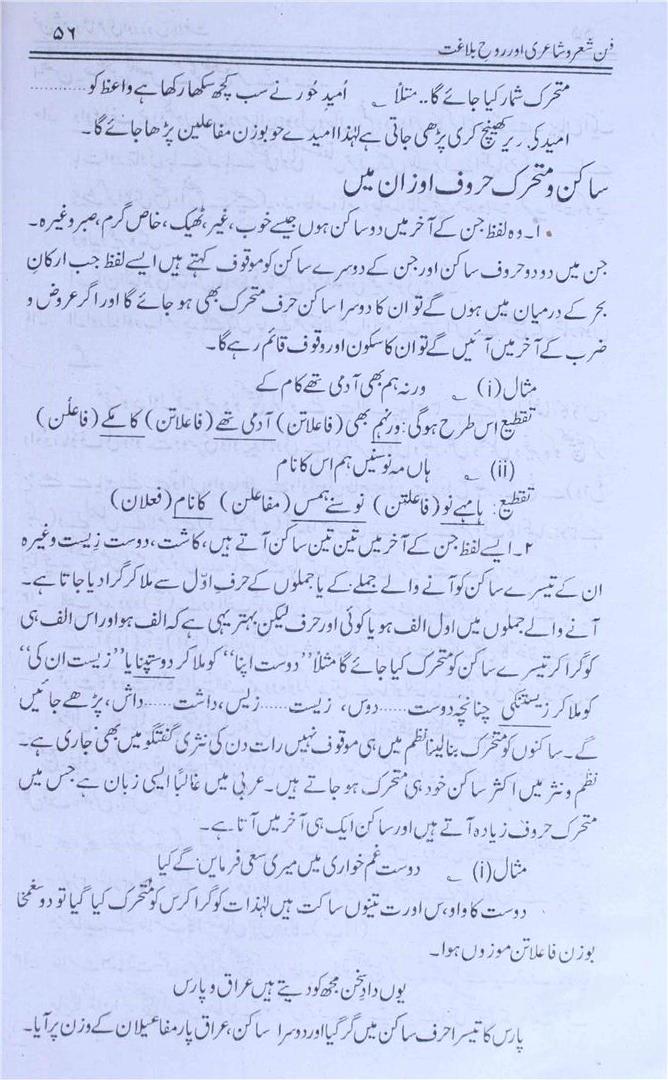 فن شعر و شاعری اور روح بلاغت
۵۶
متحرک شمار کیا جائے گا.. مثلاً ؎ اُمید حُور نے سب کچھ سکھا رکھا ہے واعظ کو ..........
امید کی ر پر کھینچ کری پڑھی جاتی ہے لہٰذا امیدے حو بوزن مفاعلین پڑھا جائے گا۔
ساکن و متحرک حروف اوزان میں
۱۔ وہ لفظ جن کے آخر میں دو ساکن ہوں جیسے خوب، غیر، ٹھیک، خاص گرم، صبر وغیرہ۔
جن میں دو دو حروف ساکن اور جن کے دوسرے ساکن کو موقوف کہتے ہیں ایسے لفظ جب ارکانِ
بحر کے درمیان میں ہوں گے تو ان کا دوسرا ساکن حرف متحرک بھی ہو جائے گا اور اگر عروض و
ضرب کے آخر میں آئیں گے تو ان کا سکون اور وقوف قائم رہے گا۔
مثال (i) ؎ ورنہ ہم بھی آدمی تھے کام کے
تقطیع اس طرح ہوگی: ورنہم بھی (فاعلاتن) آدمی تھے (فاعلاتن) کامکے (فاعلن)
(ii) ؎ ہاں مہ نو سنیں ہم اس کا نام
تقطیع: ہامہے نو (فاعلتن) نو سنے ہمس (مفاعلن) کا نام (فعلان)
۲۔ ایسے لفظ جن کے آخر میں تین تین ساکن آتے ہیں، کاشت، دوست زیست وغیرہ
ان کے تیسرے ساکن کو آنے والے جملے کے یا جملوں کے حرفِ اوّل سے ملا کر گرا دیا جاتا ہے۔
آنے والے جملوں میں اول الف ہو یا کوئی اور حرف لیکن بہتر یہی ہے کہ الف ہو اور اس الف ہی
کو گرا کر تیسرے ساکن کو متحرک کیا جائے گا مثلاً ”دوست اپنا“ کو ملا کر دوستپنا یا ”زیست ان کی“
کو ملا کر زیستنکی چنانچہ دوست ..... دوس، زیست ..... زیس، داشت ..... داش، پڑھے جائیں
گے۔ ساکنوں کو متحرک بنا لینا نظم میں ہی موقوف نہیں رات دن کی نثری گفتگو میں بھی جاری ہے۔
نظم و نثر میں اکثر ساکن خود ہی متحرک ہو جاتے ہیں۔ عربی میں غالباً ایسی زبان ہے جس میں
متحرک حروف زیادہ آتے ہیں اور ساکن ایک ہی آخر میں آتا ہے۔
مثال (i) ؎ دوست غم خواری میں میری سعی فرمایں گے کیا
دوست کا واو، س اور ت تینوں ساکت ہیں لہٰذا ت کو گرا کر س کو متحرک کیا گیا تو دو سغمخا
بوزن فاعلاتن موزوں ہوا۔
یوں دادِ سخن مجھ کو دیتے ہیں عراق و پارس
پارس کا تیسرا حرف ساکن میں گر گیا اور دوسرا ساکن، عراق پار مفاعیلان کے وزن پر آیا۔